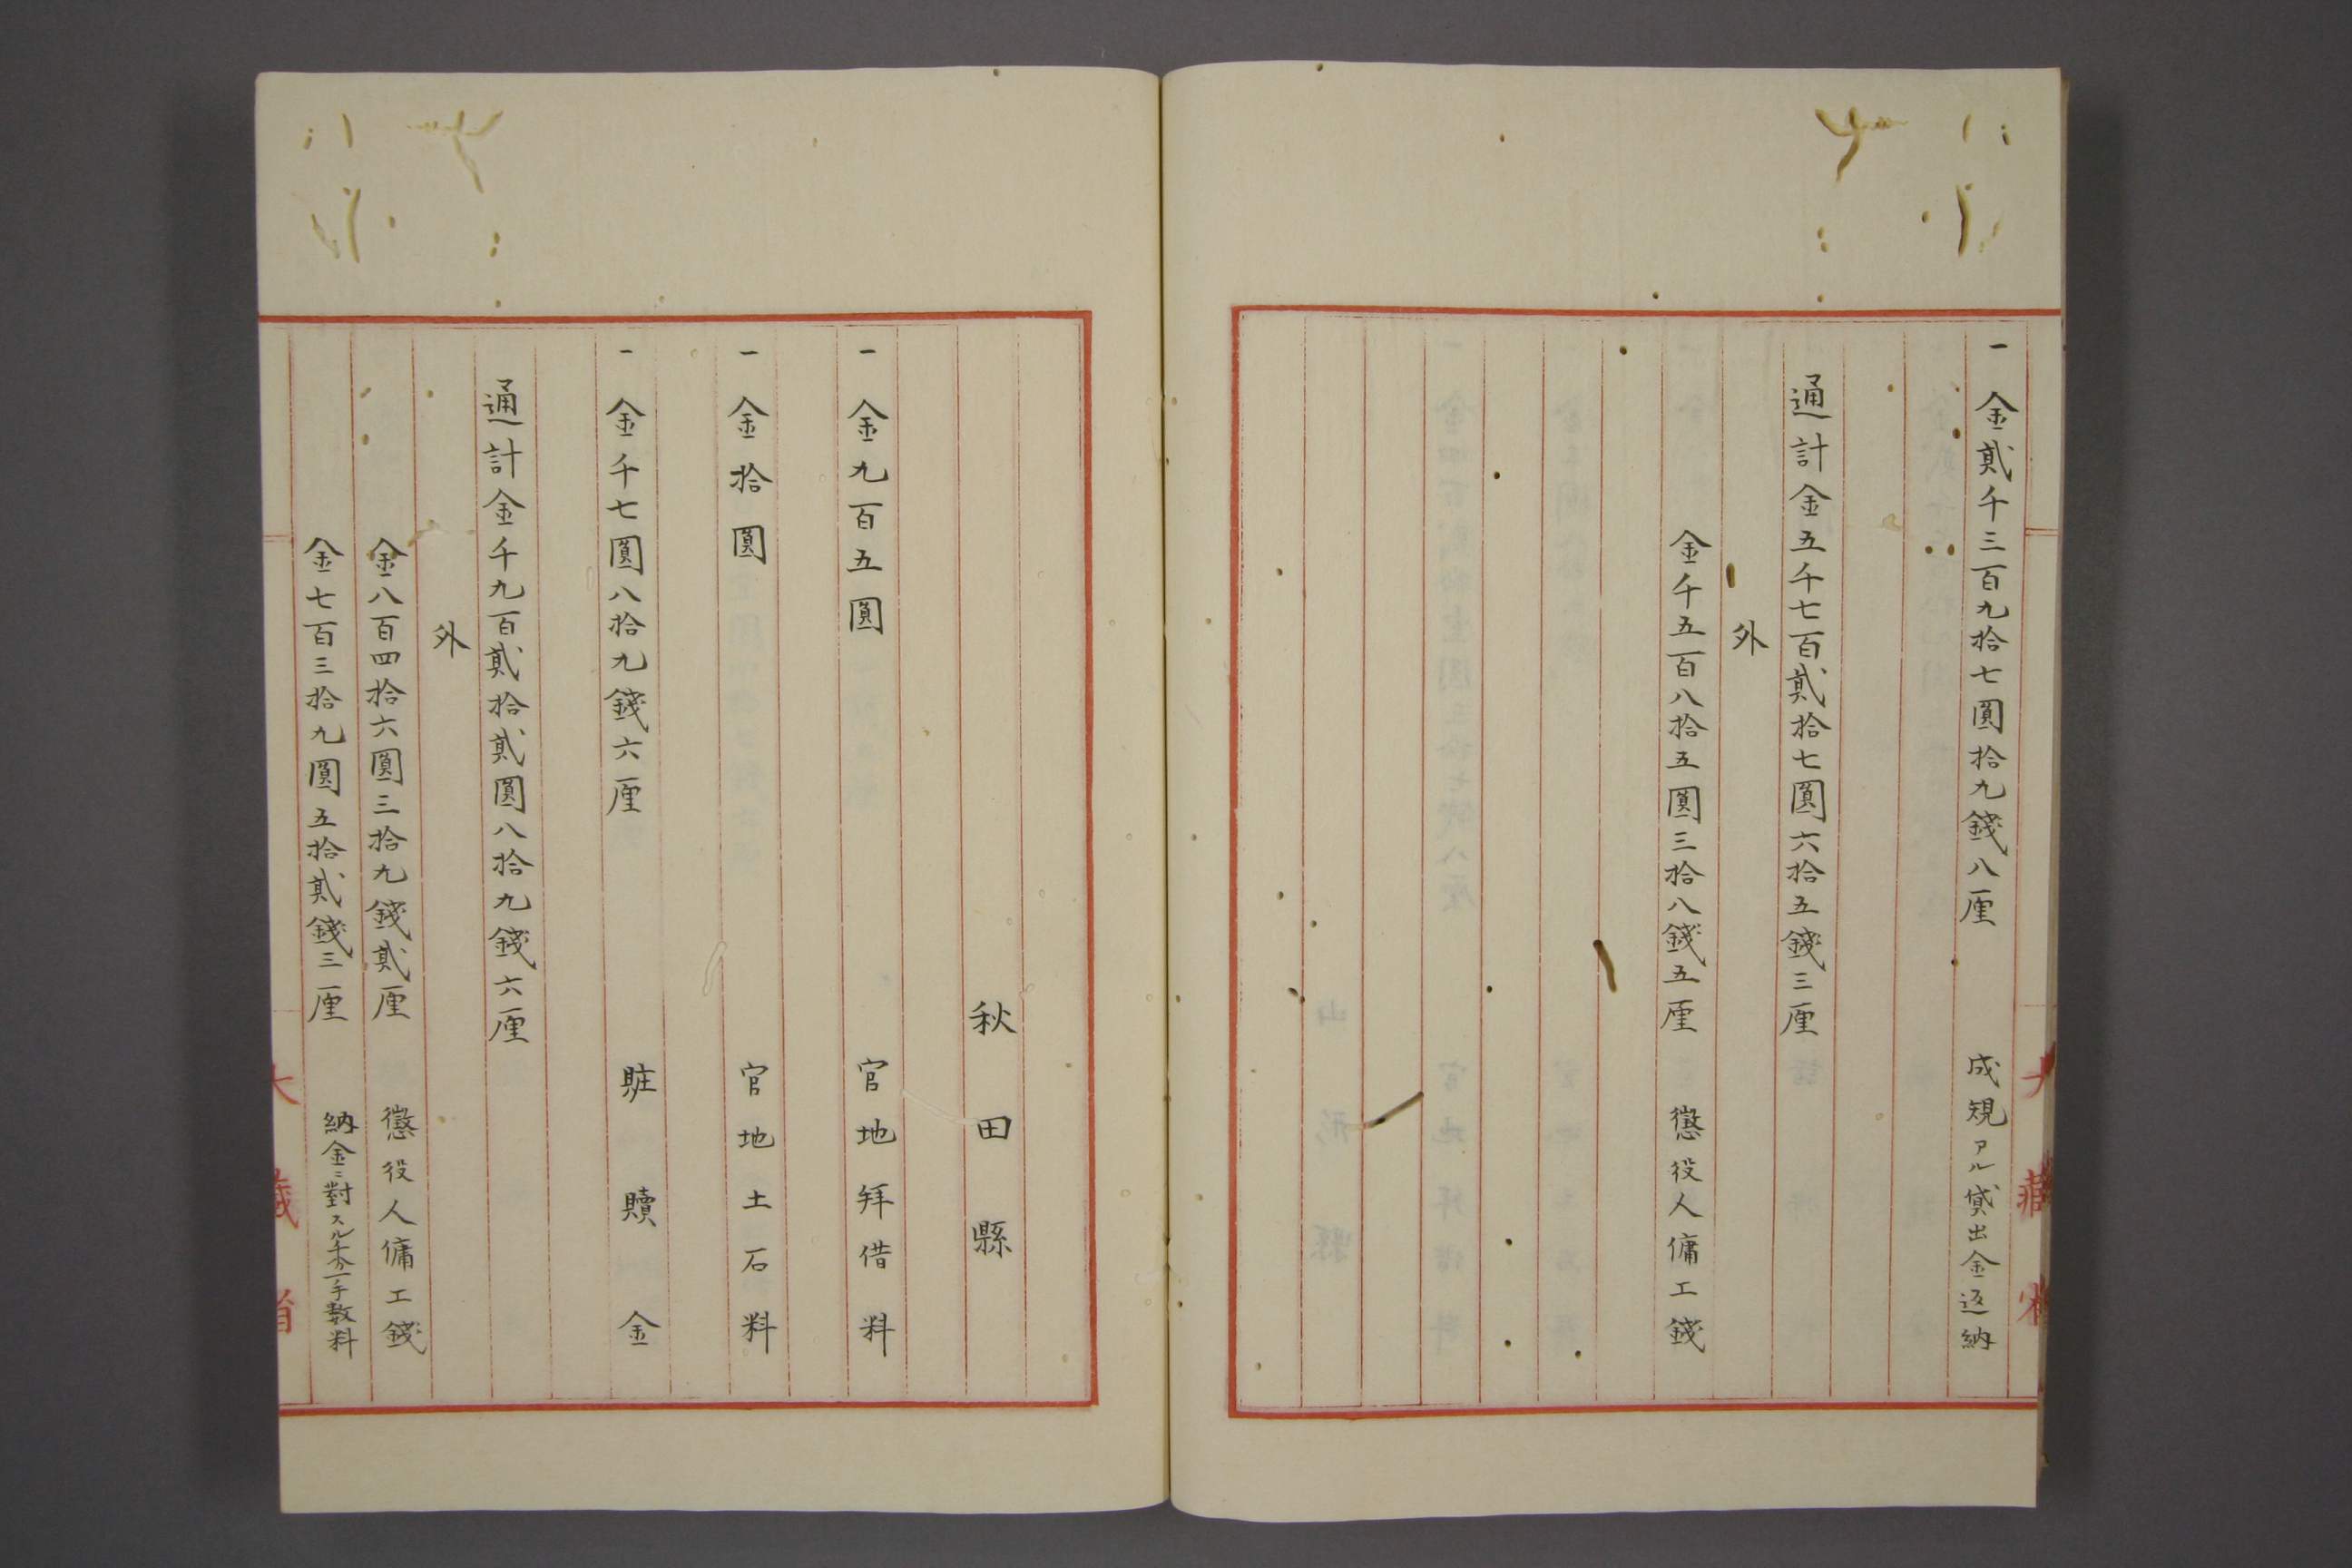 一 金貳千三百九拾七圓拾九錢八厘 成規アル貸出金返納
通計金五千七百貳拾七圓六拾五錢三厘
外
金千五百八拾五圓三拾八錢五厘 懲役人傭工錢
大藏省
秋田縣
一 金九百五圓 官地拜借料
一 金拾圓 官地土石料
一 金千七圓八拾九錢六厘 賍贖金
通計金千九百貳拾貳圓八拾九錢六厘
外
金八百四拾六圓三拾九錢貳厘 懲役人傭工錢
金七百三拾九圓五拾貳錢三厘 納金ニ對スル千分一手數料
大藏省